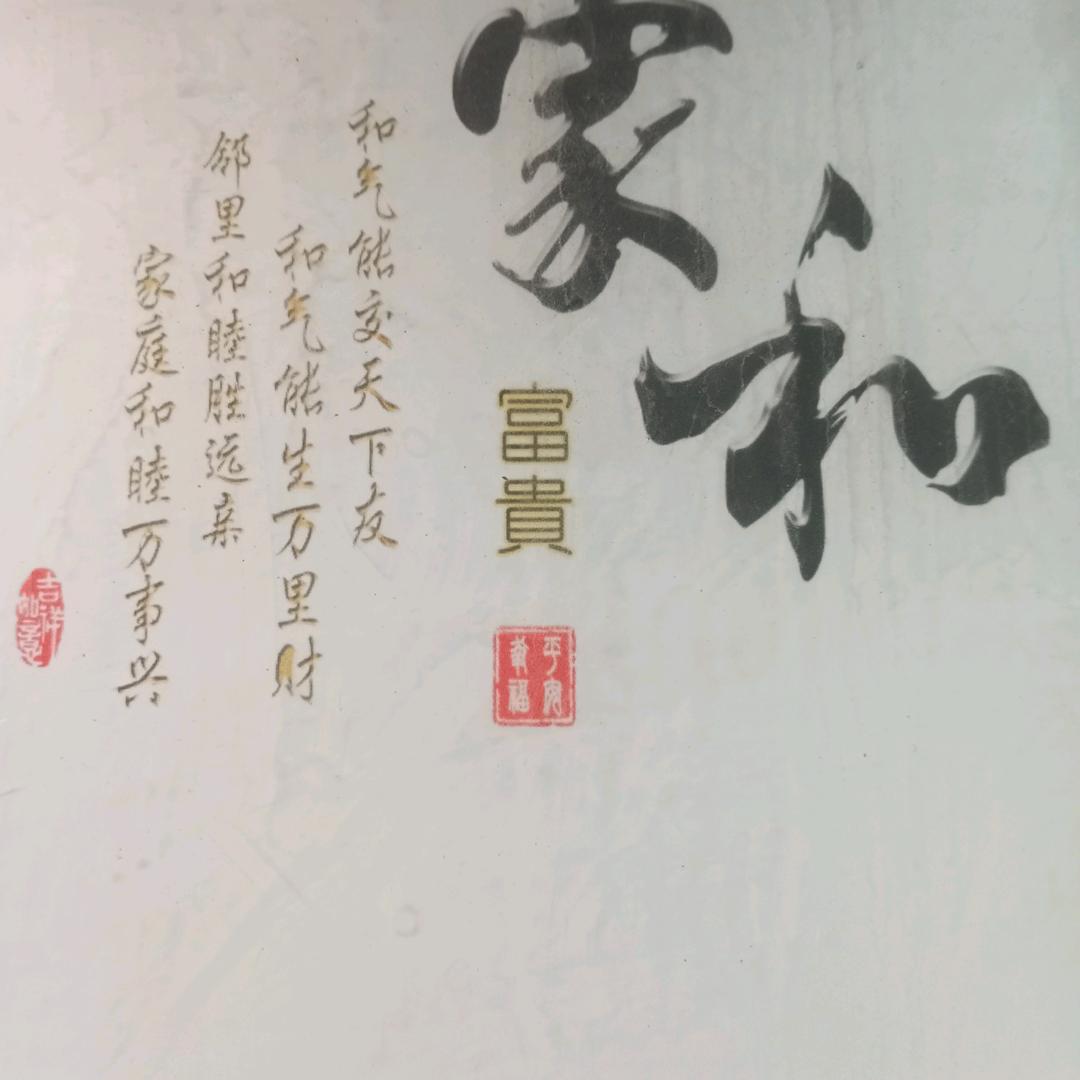 家和
富貴
平安
幸福
和气能交天下友
和气能生万里财
邻里和睦胜远亲
家庭和睦万事兴
吉祥
如意